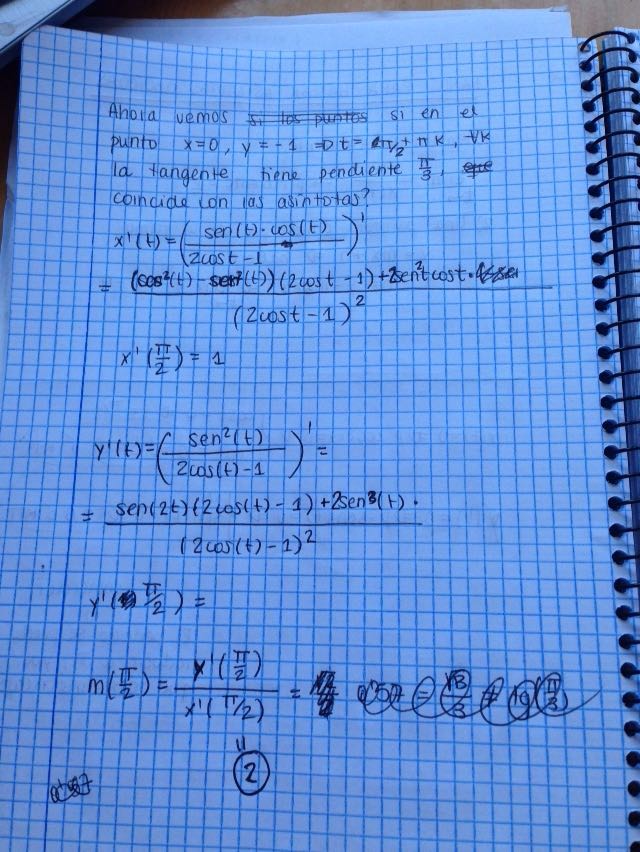 Ahora vemos si los puntos si en el
punto x=0, y = -1 ⇒ t = π/2 + πk, ∀k
la tangente tiene pendiente π/3, que
coincide con las asíntotas?
x'(t) = (sen(t)·cos(t) / 2cost-1)'
= (cos²(t) - sen²(t))(2cost-1) + 2sen²t cost · / (2cost-1)²
x'(π/2) = 1
y'(t) = (sen²(t) / 2cos(t)-1)' =
= sen(2t)(2cos(t)-1) + 2sen³(t) · / (2cos(t)-1)²
y'(π/2) =
m(π/2) = y'(π/2) / x'(π/2) = = √3/3 ≠ tg(π/3)
"
2